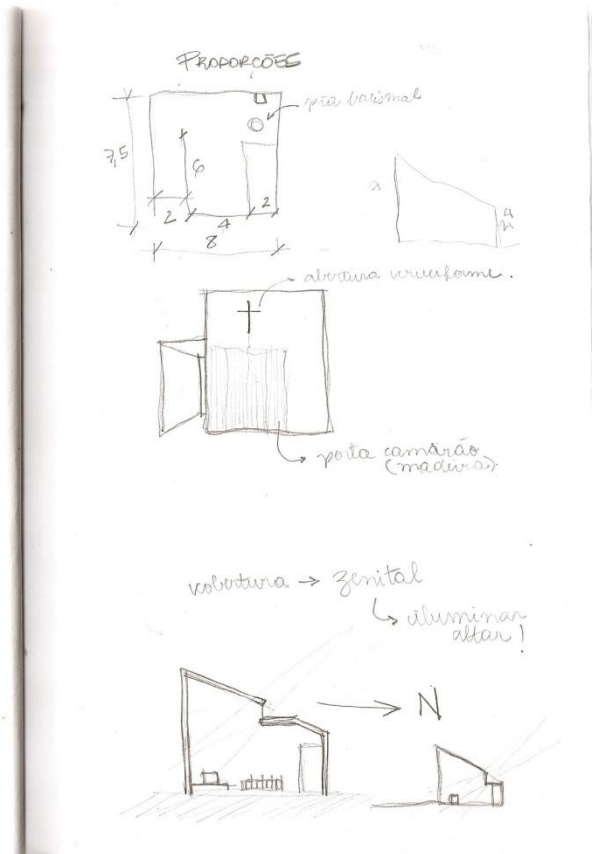 PROPORÇÕES
pia batismal
7,5
6
2
2
4
8
x
abertura cruciforme.
porta camarão
(madeira)
cobertura → zenital
↳ iluminar
altar!
N